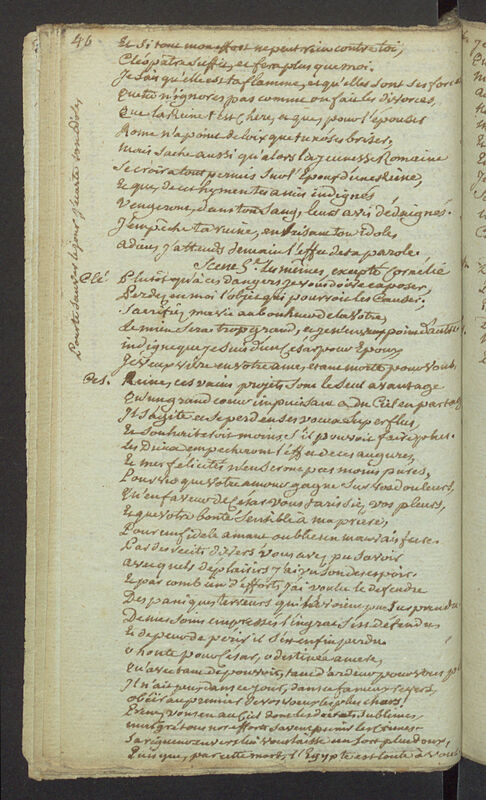 46
Et si tout mon effort ne peut rien contre toi,
Cléopatre suffit, et fera plus que moi.
Je sais qu'elle est ta flamme, et qu'elles sont ses forces
Que tu n'ignores pas comme on fait les divorces,
Que la Reine t'est chère, et que, pour l'épouser
Rome n'a point de loix que tu n'oses briser,
mais sache aussi qu'alors la jeunesse Romaine
Se croira tout permis sur l'Epoux d'une Reine,
Et que de cet hymen tes amis indignés
Vengeront, dans ton sang, leurs avis dédaignés.
J'empêche ta ruine, en
adieu j'attends demain l'effet de ta parole.
Scene 5e Les mêmes, excepté Cornélie
Clé. Plutôt qu'à ces dangers je vous doive exposer,
Perdez en moi l'objet qui pourroit les causer;
Sacrifiez ma vie au bonheur de la vôtre
le mien sera trop grand, et je n'en veux point d'autre
indigne que je suis d'un César pour Epoux,
que de vivre en votre ame, étant morte pour vous.
Ces. Reine, ces vains projets sont le seul avantage
Qu'un grand coeur impuissant a du Ciel en partage
Il s'agite et se perd en ses voeux superflus,
Et souhaiteroit moins s'il pouvoit faire plus.
Les Dieux empêcheront l'effet de ces augures,
Et mes félicités n'en seront pas moins pures,
Pourvu que votre amour gagne sur vos douleurs,
Qu'en faveur de César vous tarissiez vos pleurs,
Et que votre bonté, sensible à ma prière,
Pour un fidele amant oublie un mauvais frere.
Par des récits divers vous avez pu savoir
avec quels déplaisirs j'ai vu son désespoir,
Et par combien d'efforts j'ai voulu le défendre
Des paniques terreurs qui l'avoient pu surprendre
De mes soins empressés l'ingrat s'est défendu
Et de peur de périr il s'est enfin perdu
o honte pour César, o destinée amere,
Qu'avec tant de pouvoir, tant d'ardeur pour vous
Il n'ait pu, dans ce jour, dans ce fameux revers,
obéir au premier de vos voeux les plus chers!
Prenez vous en au Ciel dont les décrets sublimes
malgré tous nos efforts savent punir les crimes
Sa rigueur envers lui vous laisse un sort plus doux,
Puisque, par cette mort, l'Egypte est toute à vous